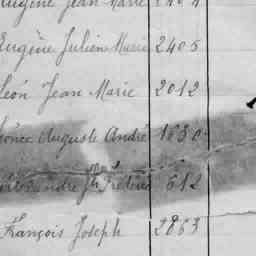 Eugène Jean Marie
Eugène Julien Marie 2405
Léon Jean Marie 2012
Léonce Auguste André 1630
Frédéric 612
François Joseph 2863